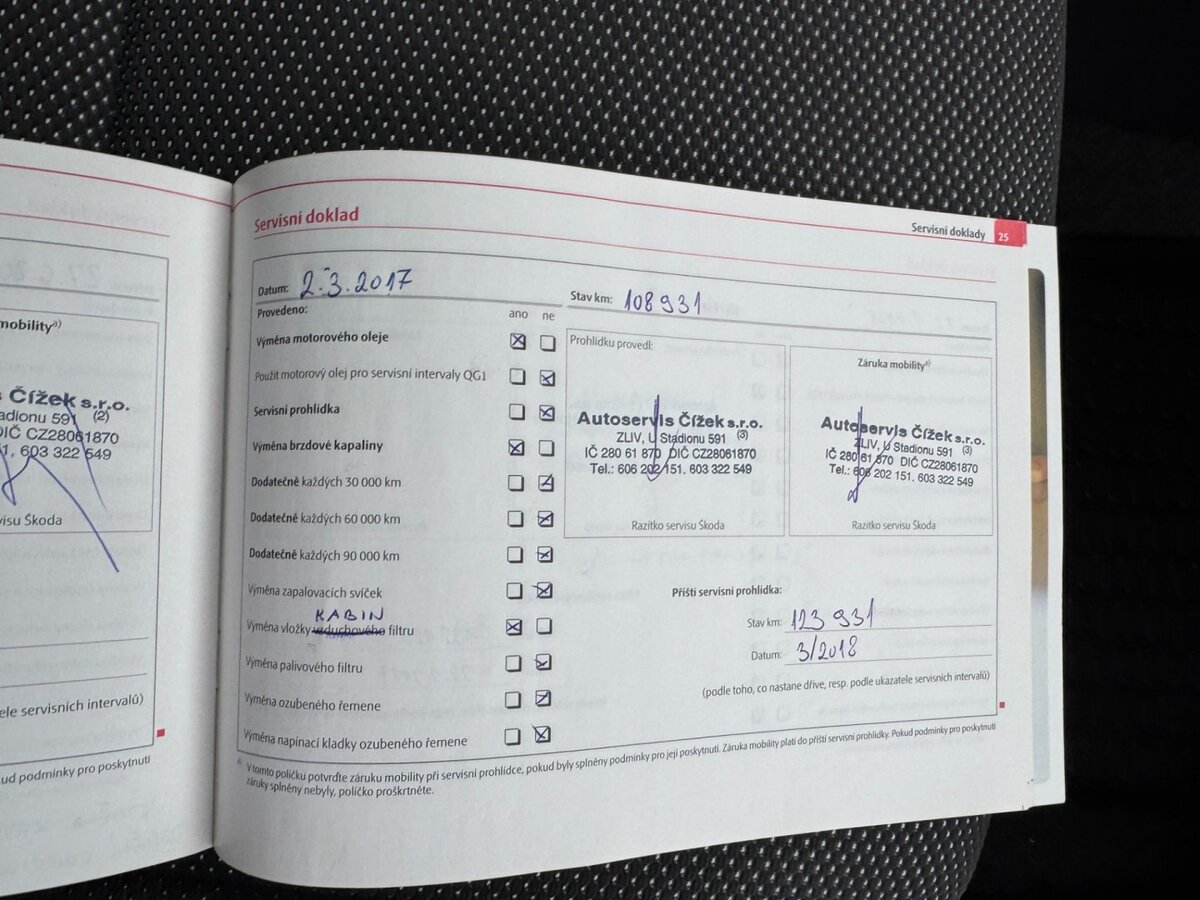 mobility a)
s Čížek s.r.o.
tadionu 591 (2)
DIČ CZ28061870
1, 603 322 549
visu Škoda
ele servisních intervalů)
ud podmínky pro poskytnutí
Servisní doklad
Servisní doklady 25
Datum: 2.3.2017
Stav km: 108 931
Provedeno:
ano ne
Výměna motorového oleje
Použit motorový olej pro servisní intervaly QG1
Servisní prohlídka
Výměna brzdové kapaliny
Dodatečně každých 30 000 km
Dodatečně každých 60 000 km
Dodatečně každých 90 000 km
Výměna zapalovacích svíček
KABIN
Výměna vložky vzduchového filtru
Výměna palivového filtru
Výměna ozubeného řemene
Výměna napínací kladky ozubeného řemene
Prohlídku provedl:
Autoservis Čížek s.r.o.
ZLIV, U Stadionu 591 (3)
IČ 280 61 870 DIČ CZ28061870
Tel.: 606 202 151, 603 322 549
Razítko servisu Škoda
Záruka mobility a)
Autoservis Čížek s.r.o.
ZLIV, U Stadionu 591 (3)
IČ 280 61 870 DIČ CZ28061870
Tel.: 606 202 151, 603 322 549
Razítko servisu Škoda
Příští servisní prohlídka:
Stav km: 123 931
Datum: 3/2018
(podle toho, co nastane dříve, resp. podle ukazatele servisních intervalů)
a) V tomto políčku potvrďte záruku mobility při servisní prohlídce, pokud byly splněny podmínky pro její poskytnutí. Záruka mobility platí do příští servisní prohlídky. Pokud podmínky pro poskytnutí
záruky splněny nebyly, políčko proškrtněte.